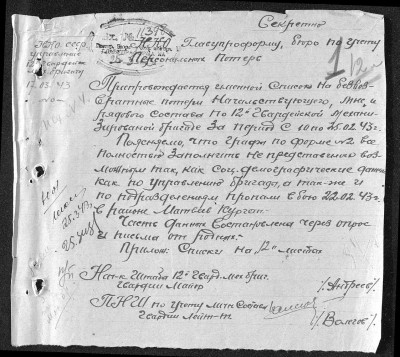 Секретно
НКО СССР
управление
12 Гвардейск
Мех бригады
17.03.43
Главупраформ, бюро по учету
Персональных Потерь
Препровождается именной Список на безвоз-
вратные потери Начальствующего, Мнс. и
Рядового Состава по 12й Гвардейской Механи-
зированой бригаде За период С 10 по 25.02.43г.
Поясняемо, что графы по форме №2 все
полностью Заполнить не представилось воз-
можным так, как Соц. демографические данные
как по Управлению бригады, а так-же и
по подразделениям пропали в бою 22.02.43г.
в районе Матвеев Курган.
Часть данных Составлена через опрос
и письма от родных.
Прилож: Списки на „12" листах
Нач-к Штаба 12й Гвард. мех бриг.
Гвардии Майор /Андреев/
ПНШ по учету личн Состава
Гвардии Лейт-т /Волегов/